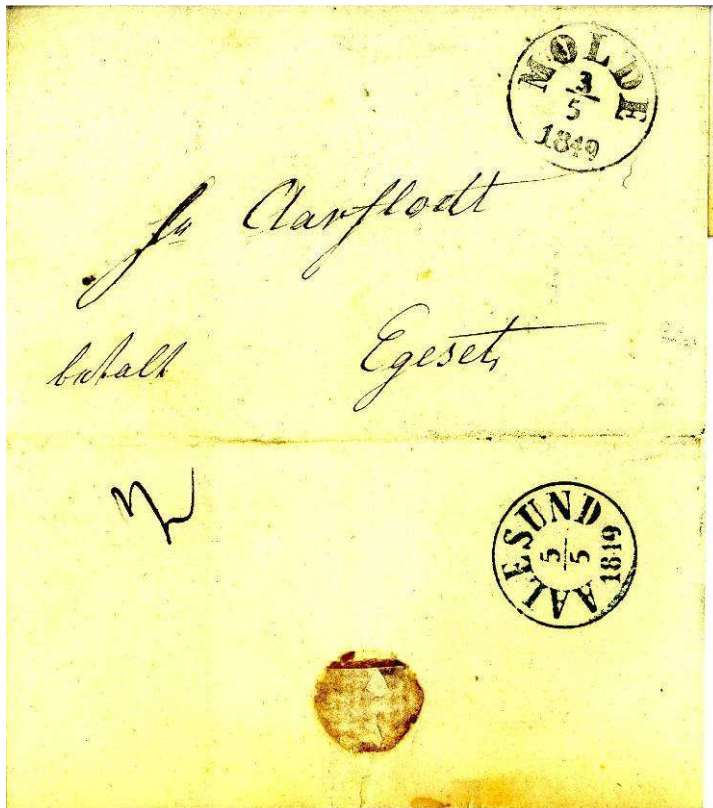 MOLDE
3/5
1849
Aarflodt
betalt Egeset,
AALESUND
5/5
1849